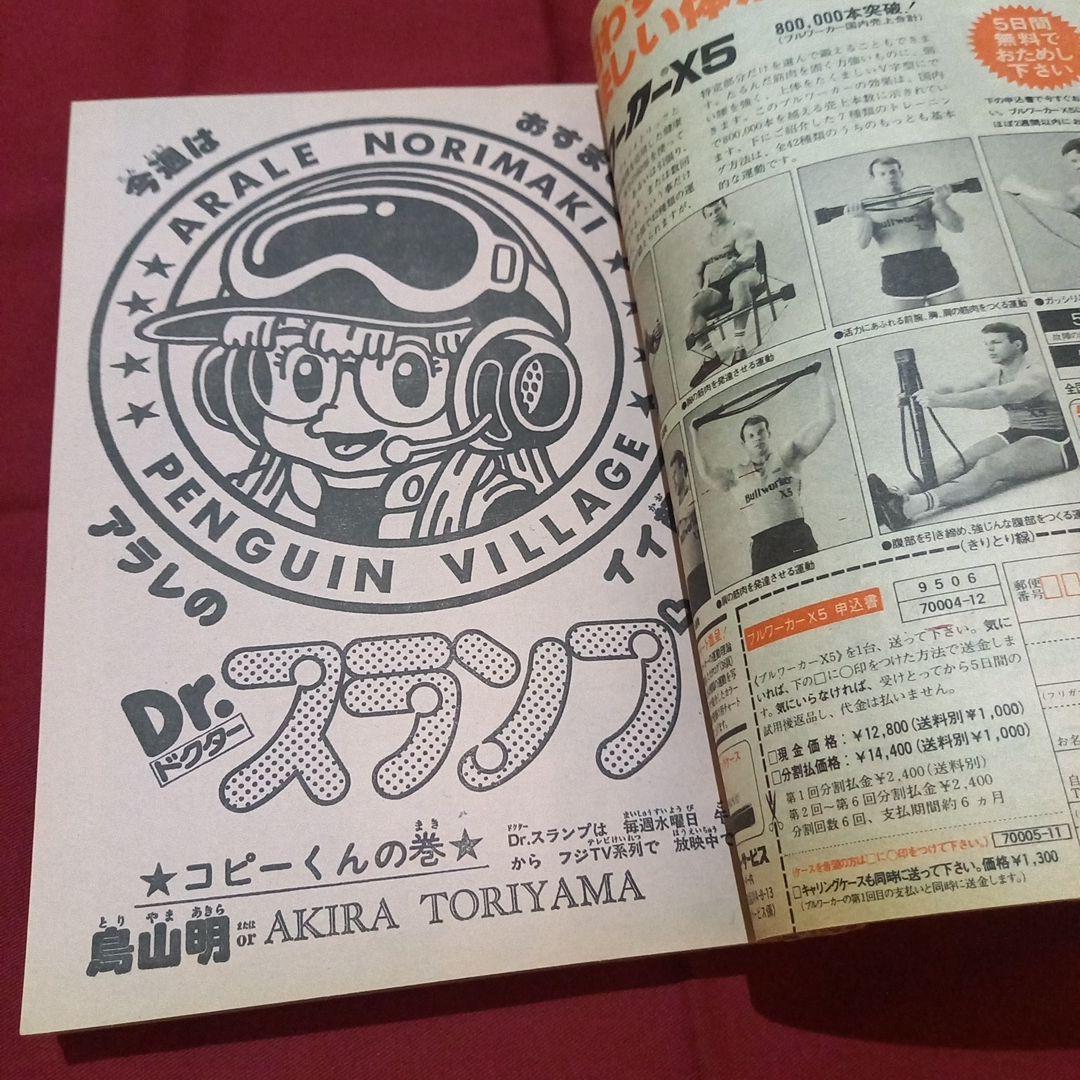 今週は
おすま
ARALE NORIMAKI
PENGUIN VILLAGE
アラレの
イイ
Dr.
ドクター
スランプ
★コピーくんの巻★
まき
ドクター
まいしゅうすいようび
Dr.スランプは 毎週水曜日
テレビけいれつ
ほうえいちゅう
から フジTV系列で 放映中で
とり やま あきら
鳥山明
または
or AKIRA TORIYAMA
800,000本突破!
(ブルワーカー国内売上合計)
5日間
無料で
おためし
下さい
ーカーX5
特定部分だけを選んで鍛えることもできま
す。たるんだ筋肉を固く力強いものに、弱
い腰を強く、上体をたくましいV字型にで
きます。このブルワーカーの効果は、国内
で800,000本を越える売上本数に示されてい
ます。下にご紹介した7種類のトレーニン
グ方法は、全42種類のうちのもっとも基本
的な運動です。
●胸の筋肉を発達させる運動
●活力にあふれる前腕、胸、肩の筋肉をつくる運動
●ガッシリ
Bullworker
Bullworker
X5
●肩の筋肉を発達させる運動
●腹部を引き締め、強じんな腹部をつくる運
(きりとり線)
ブルワーカーX5 申込書
9506
70004-12
郵便
番号
《ブルワーカーX5》を1台、送って下さい。気に
いれば、下の□に○印をつけた方法で送金しま
す。気にいらなければ、受けとってから5日間の
試用後返品し、代金は払いません。
□現金価格:¥12,800(送料別¥1,000)
□分割払価格:¥14,400(送料別¥1,000)
第1回分割払金¥2,400(送料別)
第2回〜第6回分割払金¥2,400
分割回数6回、支払期間約6ヵ月
(ケースを希望の方は□に○印をつけて下さい。)
70005-11
□キャリングケースも同時に送って下さい。価格¥1,300
(ブルワーカーの第1回目の支払いと同時に送金します。)
(フリガ
お名